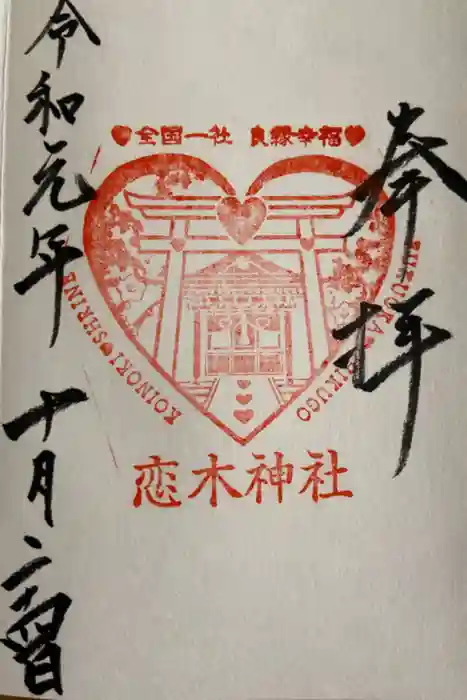 奉拝
♥全国一社 良縁幸福♥
KOINOKI♥SHRINE
FUKUOKA♥CHIKUGO
恋木神社
令和元年 十月二十四日